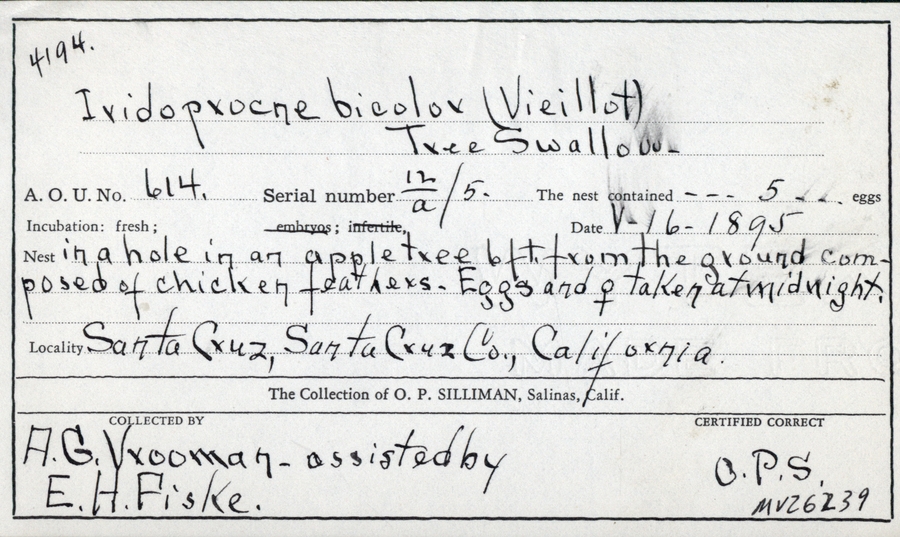 4194.
Iridoprocne bicolor (Vieillot)
Tree Swallow-
A. O. U. No. 614. Serial number 12/a / 5- The nest contained --- 5 --- eggs
Incubation: fresh; embryos; infertile, Date V-16-1895
Nest in a hole in an apple tree 6ft. from the ground com-
posed of chicken feathers. Eggs and ♀ taken at midnight.
Locality Santa Cruz, Santa Cruz Co., California.
The Collection of O. P. SILLIMAN, Salinas, Calif.
COLLECTED BY CERTIFIED CORRECT
A.G. Vrooman- assisted by
E.H. Fiske.
O.P.S.
MVZ6239